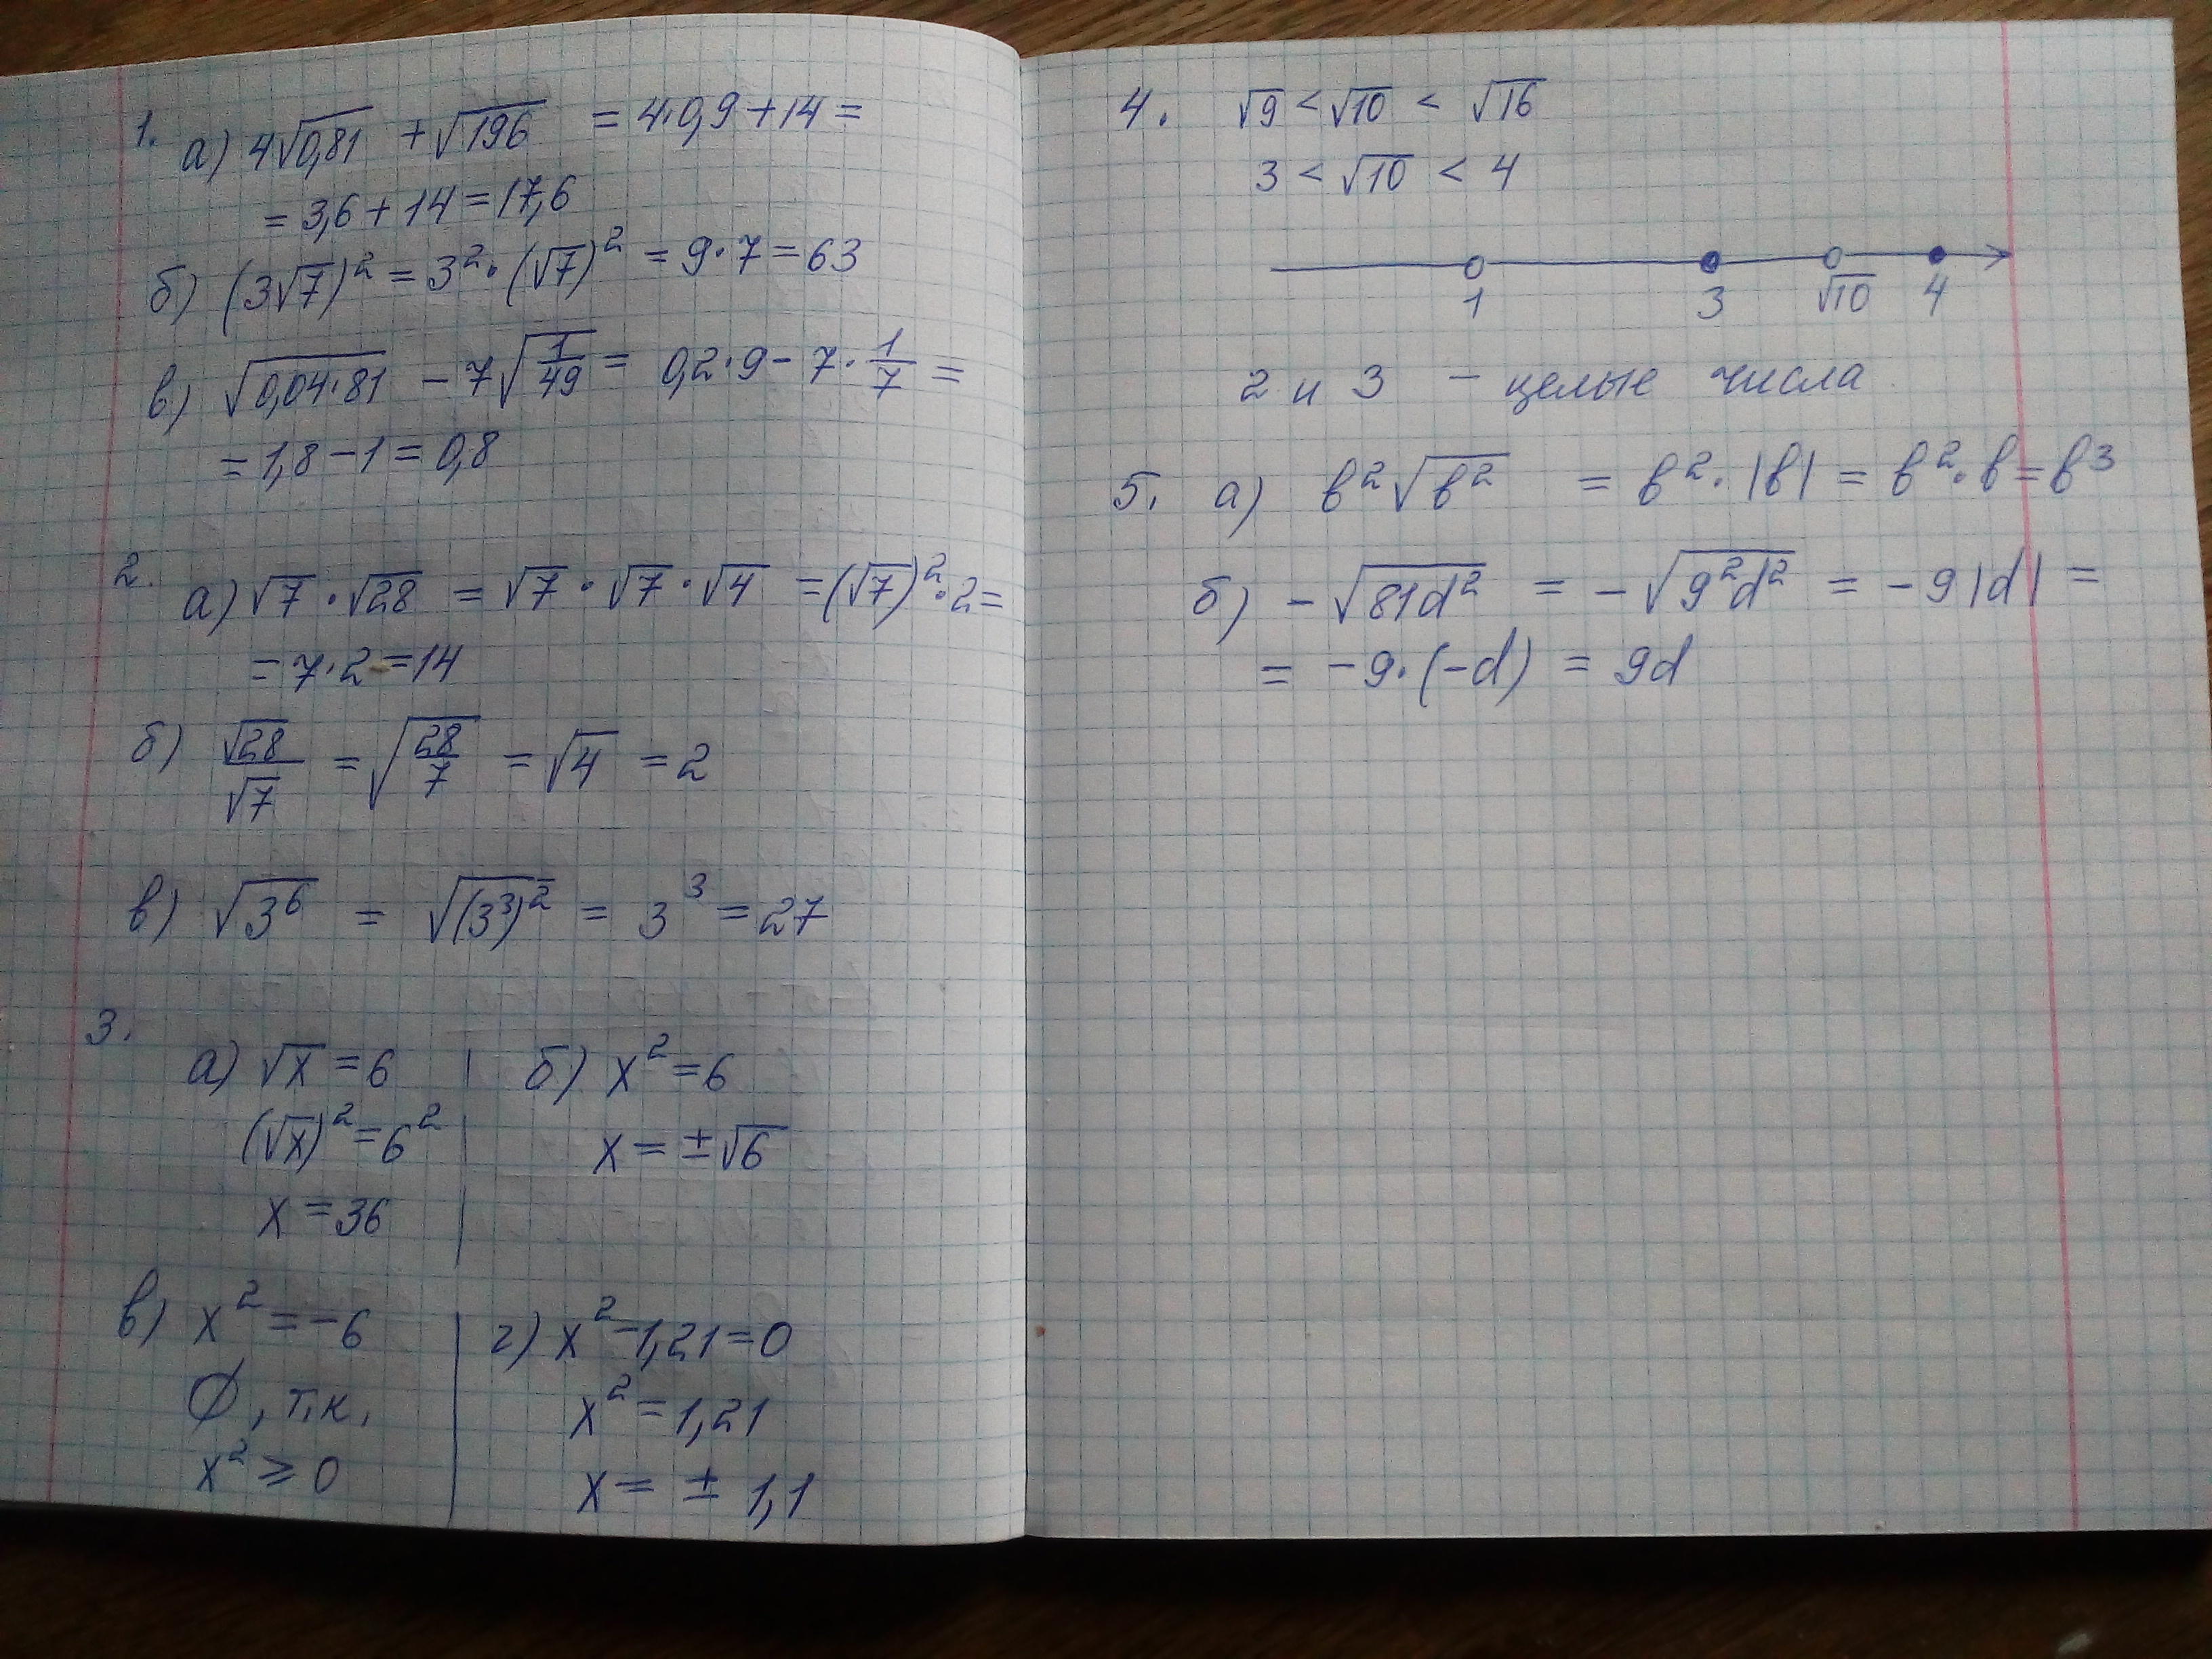 1.
а) 4√0,81 + √196 = 4·0,9+14=
= 3,6+14=17,6
б) (3√7)² = 3²·(√7)² = 9·7=63
в) √0,04·81 − 7√1/49 = 0,2·9− 7·1/7 =
=1,8−1=0,8
2.
а) √7·√28 = √7·√7·√4 =(√7)²·2=
=7·2=14
б) √28/√7 = √28/7 = √4 = 2
в) √3⁶ = √(3³)² = 3³ = 27
3.
а) √x = 6
(√x)²=6²
x = 36
б) x²=6
x = ±√6
в) x² = −6
∅, т.к.
x² ⩾ 0
г) x²−1,21=0
x² = 1,21
x = ± 1,1
4. √9 < √10 < √16
3 < √10 < 4
1 3 √10 4
2 и 3 – целые числа
5. а) в²√в² = в²·|в| = в²·в=в³
б) −√81d² = −√9²d² = −9|d| =
= −9·(−d) = 9d